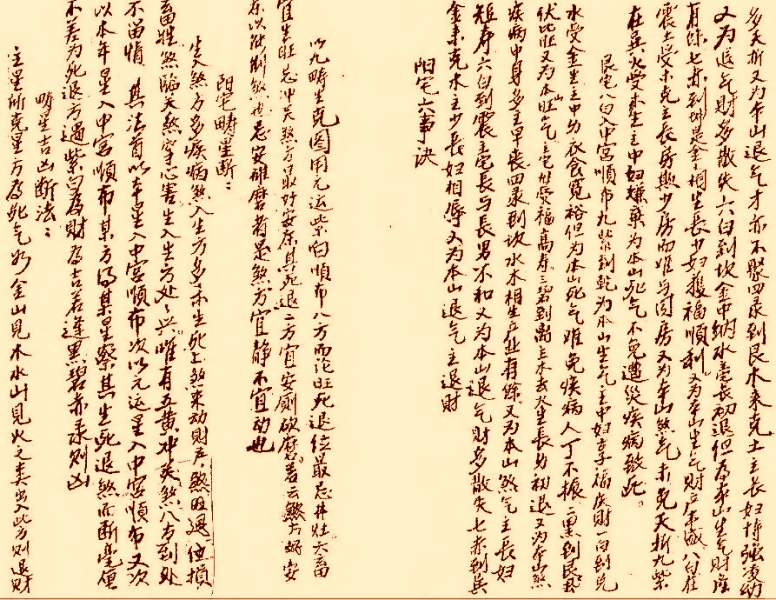 多夭折又为本山退气才亦不聚四录到艮木来克土主長妇持强凌幼
又为退气財多散失六白到坎金中納水主長初退但為本山生气財產
有餘七赤到坤是土金相生長少妇獲福順利又为本山生气財产丰盛八白在
震土受木克主長房興少房而难当因房又为本山煞气未免夭折九紫
在巽火受木生主中妇嫌棄为本山死气不免遭災疾病致死
艮宅八白入中宮順布九紫到乾为本山生气主中妇享福庆財一白到兌
水受金生主中男衣食寬裕但为本山死气难免疾病人丁不振二黑到艮
伏比旺又为本山旺气主宅母受福高寿三碧到离主木去火生長男初退又为本山煞
疾病中身多主早喪四录到坎水木相生产业有餘又为本山煞气主長妇
短寿六白到震主宅長与長男不和又为本山退气財多散失七赤到巽
金来克木主少長妇相辱又为本山退气主退財
阳宅六事决
以九疇生克圖用元运紫白順布八方而论旺死退位最忌井灶六畜
宜生旺忌冲关煞方只最好安床其死退二方宜安厠砍磨若云煞方可安
床以能制煞也忌安碓磨者是煞方宜静不宜动也
阳宅疇星断：
生入煞方多疾病煞入生方多不生死上煞来动財产煞旺退位損
畜牲煞臨关煞穿心害生入生方处处兴唯有五黄冲关煞八方到处
不留情 其法首以本星入中宮順布次以元运星入中宮順布又次
以本年星入中宮順布某方得某星察其生死退煞而断毫厘
不差为死退方遇紫白为財为吉若逢黑碧赤录则凶
疇星吉凶断法：
主星所克星方为死气如金山見木水山見火之类出入此方则退財